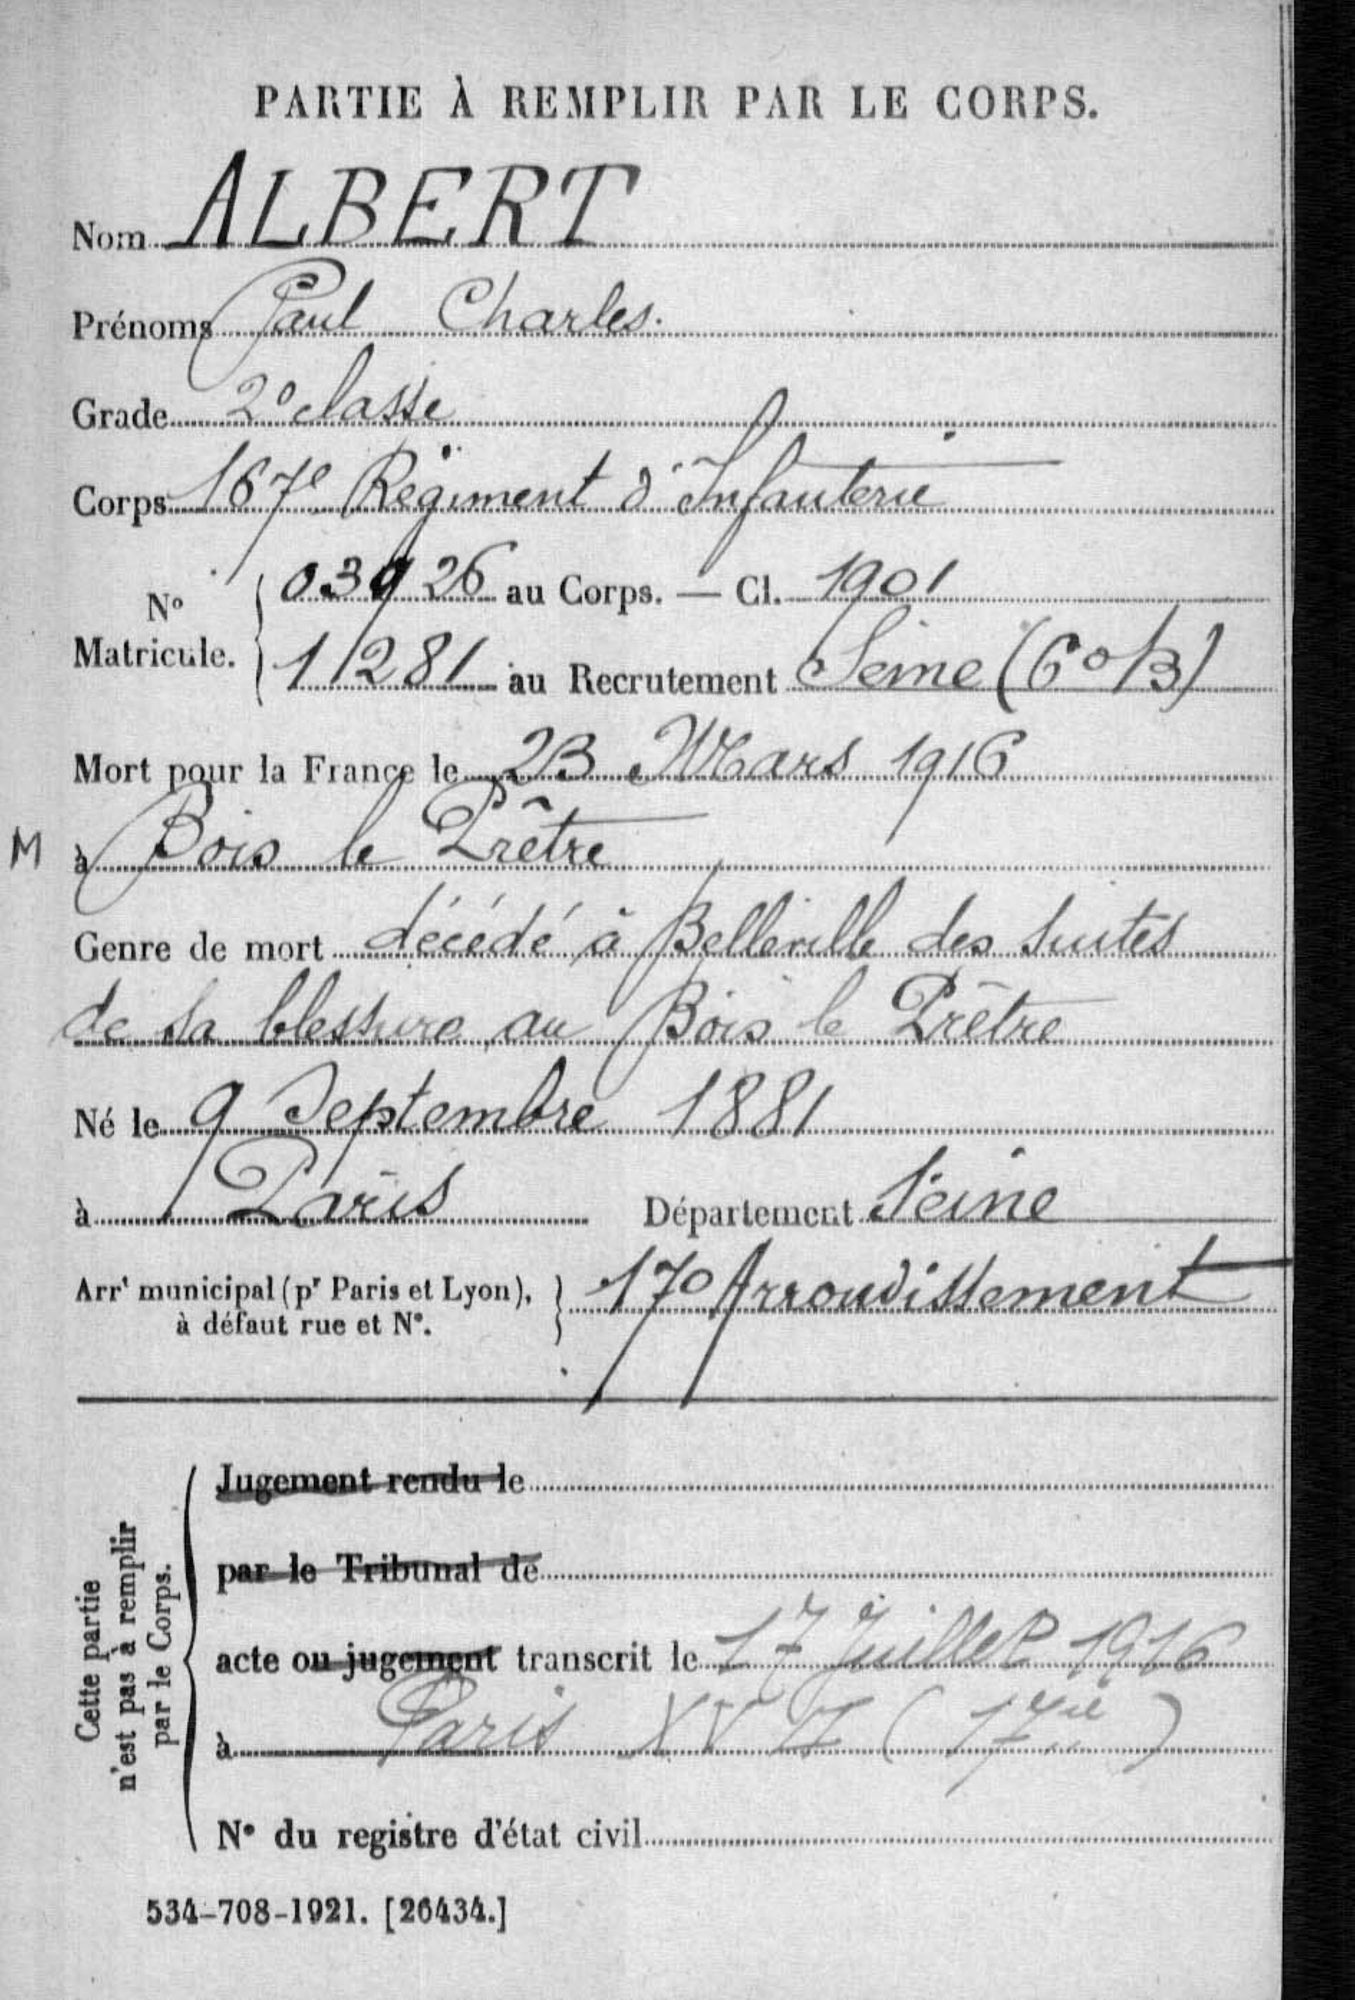 PARTIE À REMPLIR PAR LE CORPS.
Nom ALBERT
Prénoms Paul Charles.
Grade 2e classe
Corps 167e Régiment d'Infanterie
N° Matricule. 03926 au Corps. — Cl. 1901
1281 au Recrutement Seine (6e B)
Mort pour la France le 23 Mars 1916
M à Bois le Prêtre
Genre de mort décédé à Belleville des suites
de sa blessure au Bois le Prêtre
Né le 9 Septembre 1881
à Paris Département Seine
Arrt municipal (pr Paris et Lyon), à défaut rue et N°. 17e Arrondissement
Cette partie n'est pas à remplir par le Corps.
Jugement rendu le
par le Tribunal de
acte ou jugement transcrit le 17 Juillet 1916
à Paris XVII (17e)
N° du registre d'état civil
534-708-1921. [26434.]